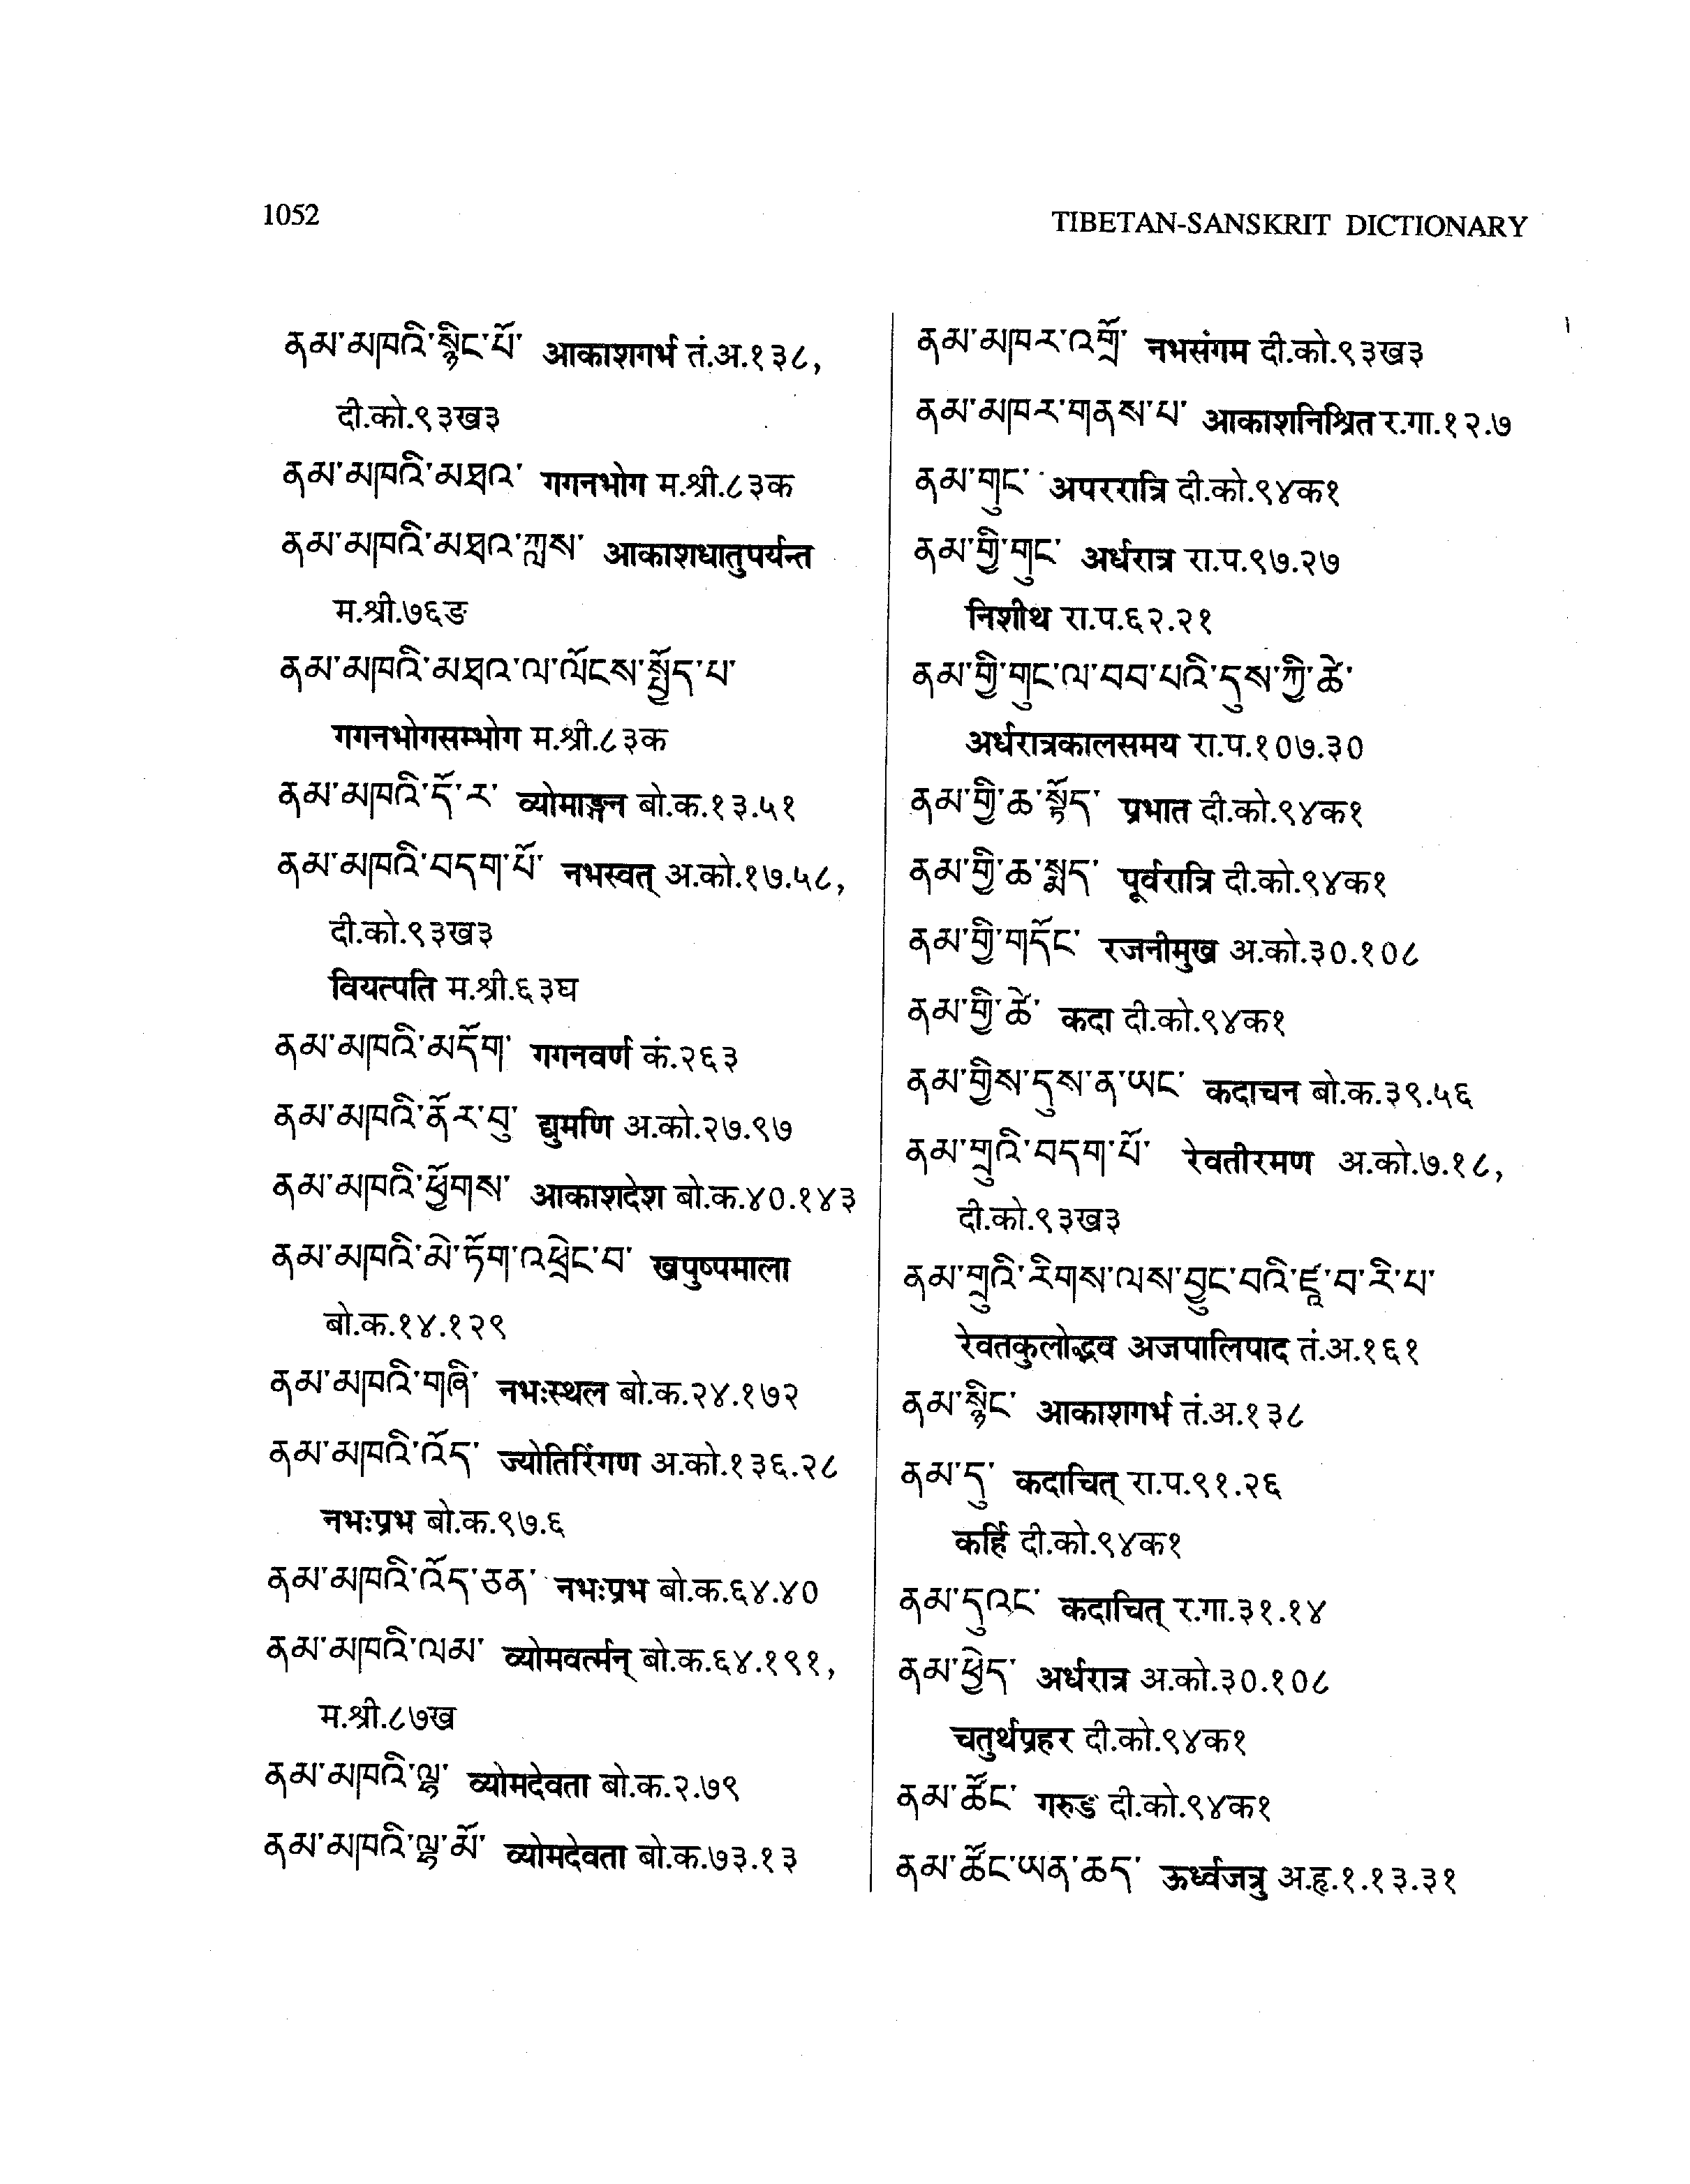 1052
TIBETAN-SANSKRIT DICTIONARY
ནམ་མཁའི་སྙིང་པོ་ आकाशगर्भ तं.अ.१३८,
दी.को.९३ख३
ནམ་མཁའི་མཐའ་ गगनभोग म.श्री.८३क
ནམ་མཁའི་མཐའ་ཀླས་ आकाशधातुपर्यन्त
म.श्री.७६ङ
ནམ་མཁའི་མཐའ་ལ་ལོངས་སྤྱོད་པ་
गगनभोगसम्भोग म.श्री.८३क
ནམ་མཁའི་དོ་ར་ व्योमाङ्गन बो.क.१३.५१
ནམ་མཁའི་བདག་པོ་ नभस्वत् अ.को.१७.५८,
दी.को.९३ख३
वियत्पति म.श्री.६३घ
ནམ་མཁའི་མདོག་ गगनवर्ण कं.२६३
ནམ་མཁའི་ནོར་བུ་ द्युमणि अ.को.२७.९७
ནམ་མཁའི་ཕྱོགས་ आकाशदेश बो.क.४०.१४३
ནམ་མཁའི་མེ་ཏོག་འཕྲེང་བ་ खपुष्पमाला
बो.क.१४.१२९
ནམ་མཁའི་གཞི་ नभःस्थल बो.क.२४.१७२
ནམ་མཁའི་འོད་ ज्योतिरिंगण अ.को.१३६.२८
नभःप्रभ बो.क.९७.६
ནམ་མཁའི་འོད་ཅན་ नभःप्रभ बो.क.६४.४०
ནམ་མཁའི་ལམ་ व्योमवर्त्मन् बो.क.६४.१९१,
म.श्री.८७ख
ནམ་མཁའི་ལྷ་ व्योमदेवता बो.क.२.७९
ནམ་མཁའི་ལྷ་མོ་ व्योमदेवता बो.क.७३.१३
ནམ་མཁར་འགྲོ་ नभसंगम दी.को.९३ख३
ནམ་མཁར་གནས་པ་ आकाशनिश्रित र.गा.१२.७
ནམ་གུང་ अपररात्रि दी.को.९४क१
ནམ་གྱི་གུང་ अर्धरात्र रा.प.९७.२७
निशीथ रा.प.६२.२१
ནམ་གྱི་གུང་ལ་བབ་པའི་དུས་ཀྱི་ཚེ་
अर्धरात्रकालसमय रा.प.१०७.३०
ནམ་གྱི་ཆ་སྟོད་ प्रभात दी.को.९४क१
ནམ་གྱི་ཆ་སྨད་ पूर्वरात्रि दी.को.९४क१
ནམ་གྱི་གདོང་ रजनीमुख अ.को.३०.१०८
ནམ་གྱི་ཚེ་ कदा दी.को.९४क१
ནམ་གྱིས་དུས་ན་ཡང་ कदाचन बो.क.३९.५६
ནམ་གྲུའི་བདག་པོ་ रेवतीरमण अ.को.७.१८,
दी.को.९३ख३
ནམ་གྲུའི་རིགས་ལས་བྱུང་བའི་ཛཱ་བ་རི་པ་
रेवतकुलोद्भव अजपालिपाद तं.अ.१६१
ནམ་སྙིང་ आकाशगर्भ तं.अ.१३८
ནམ་དུ་ कदाचित् रा.प.९१.२६
कर्हि दी.को.९४क१
ནམ་དུའང་ कदाचित् र.गा.३१.१४
ནམ་ཕྱེད་ अर्धरात्र अ.को.३०.१०८
चतुर्थप्रहर दी.को.९४क१
ནམ་ཚོང་ गरुड दी.को.९४क१
ནམ་ཚོང་ཡན་ཆད་ ऊर्ध्वजत्रु अ.हृ.१.१३.३१